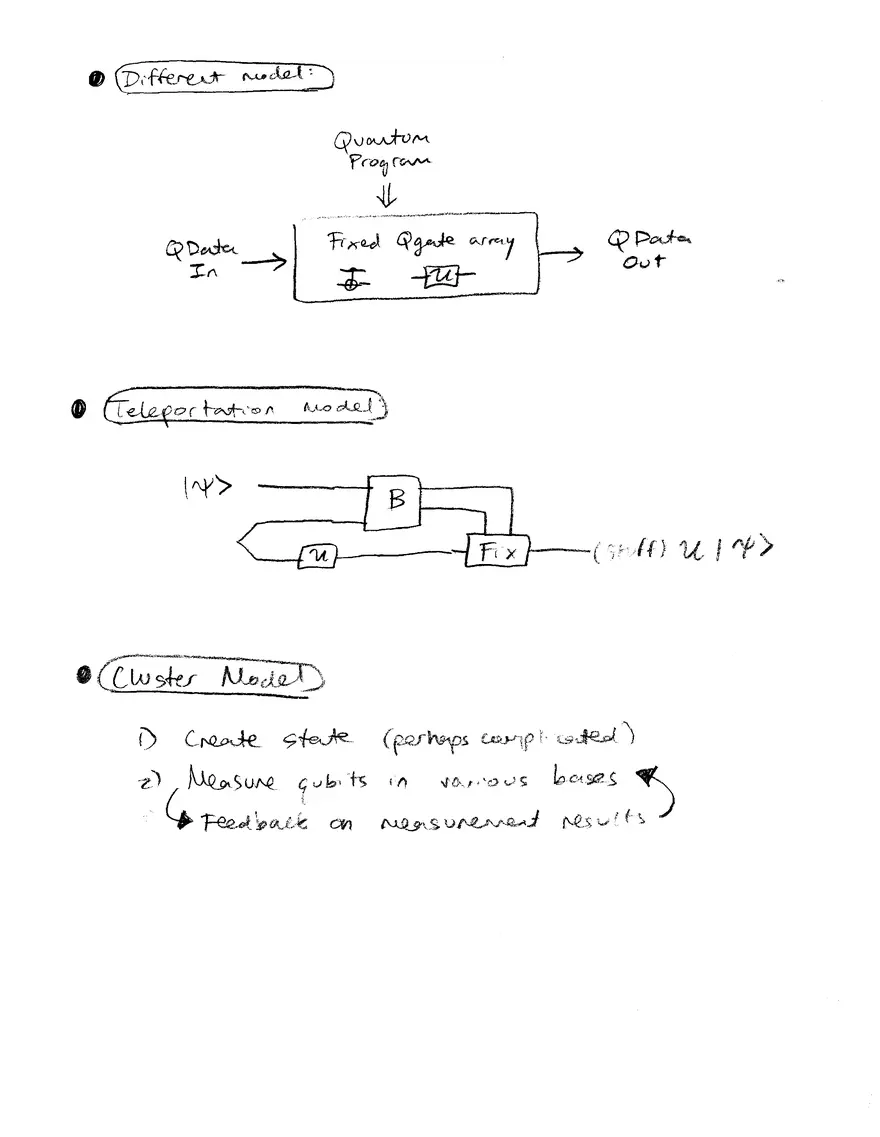 Different model:
Quantum
Program
Fixed Qgate array
QData
In
QData
Out
U
Teleportation model:
|ψ>
B
U
Fix
(stuff) U |ψ>
Cluster Model
1) Create state (perhaps complicated)
2) Measure qubits in various bases
Feedback on measurement results